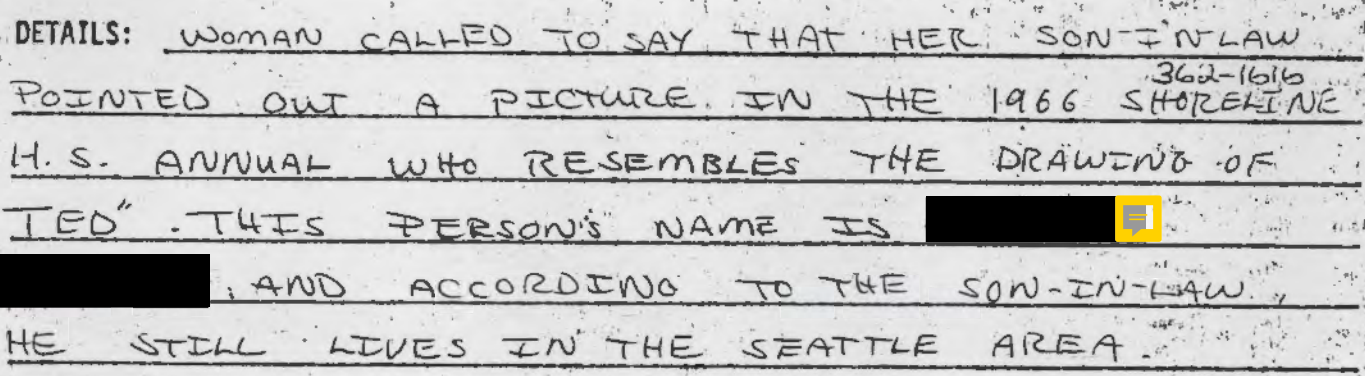 DETAILS: WOMAN CALLED TO SAY THAT HER SON-IN-LAW
362-1616
POINTED OUT A PICTURE IN THE 1966 SHORELINE
H.S. ANNUAL WHO RESEMBLES THE DRAWING OF
TED". THIS PERSON'S NAME IS
, AND ACCORDING TO THE SON-IN-LAW,
HE STILL LIVES IN THE SEATTLE AREA.